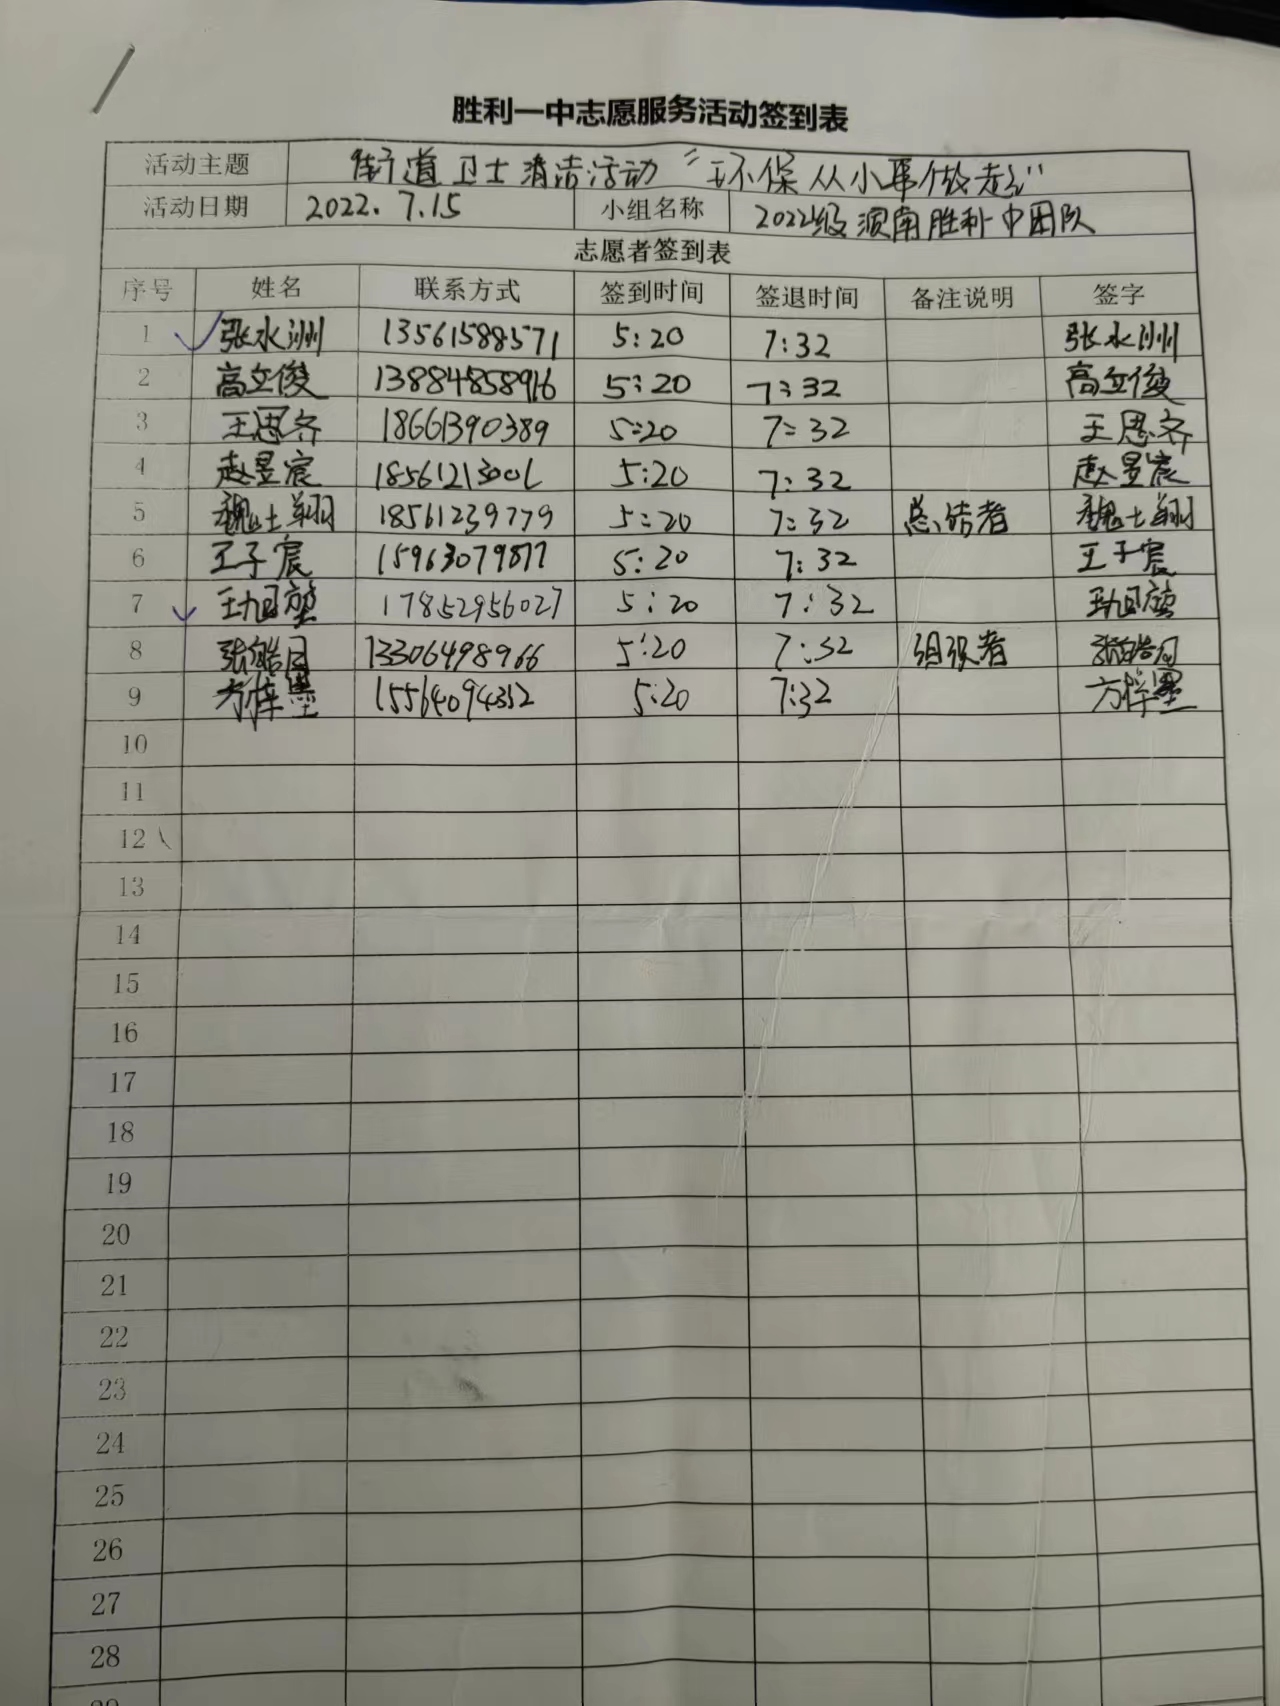 胜利一中志愿服务活动签到表
活动主题 街道卫士清洁活动“环保从小事做起”
活动日期 2022.7.15 小组名称 2022级 胜利一中团队
志愿者签到表
序号 姓名 联系方式 签到时间 签退时间 备注说明 签字
1 张水洲 13561588571 5:20 7:32 张水洲
2 高立俊 13884858916 5:20 7:32 高立俊
3 王思齐 18661390389 5:20 7:32 王思齐
4 赵昱宸 5:20 7:32 赵昱宸
5 魏士翔 18561239779 5:20 7:32 总结者 魏士翔
6 王子宸 15963079877 5:20 7:32 王子宸
7 17852956027 5:20 7:32
8 13306498966 5:20 7:32 组织者
9 方梓墨 15564094352 5:20 7:32 方梓墨
10
11
12
13
14
15
16
17
18
19
20
21
22
23
24
25
26
27
28